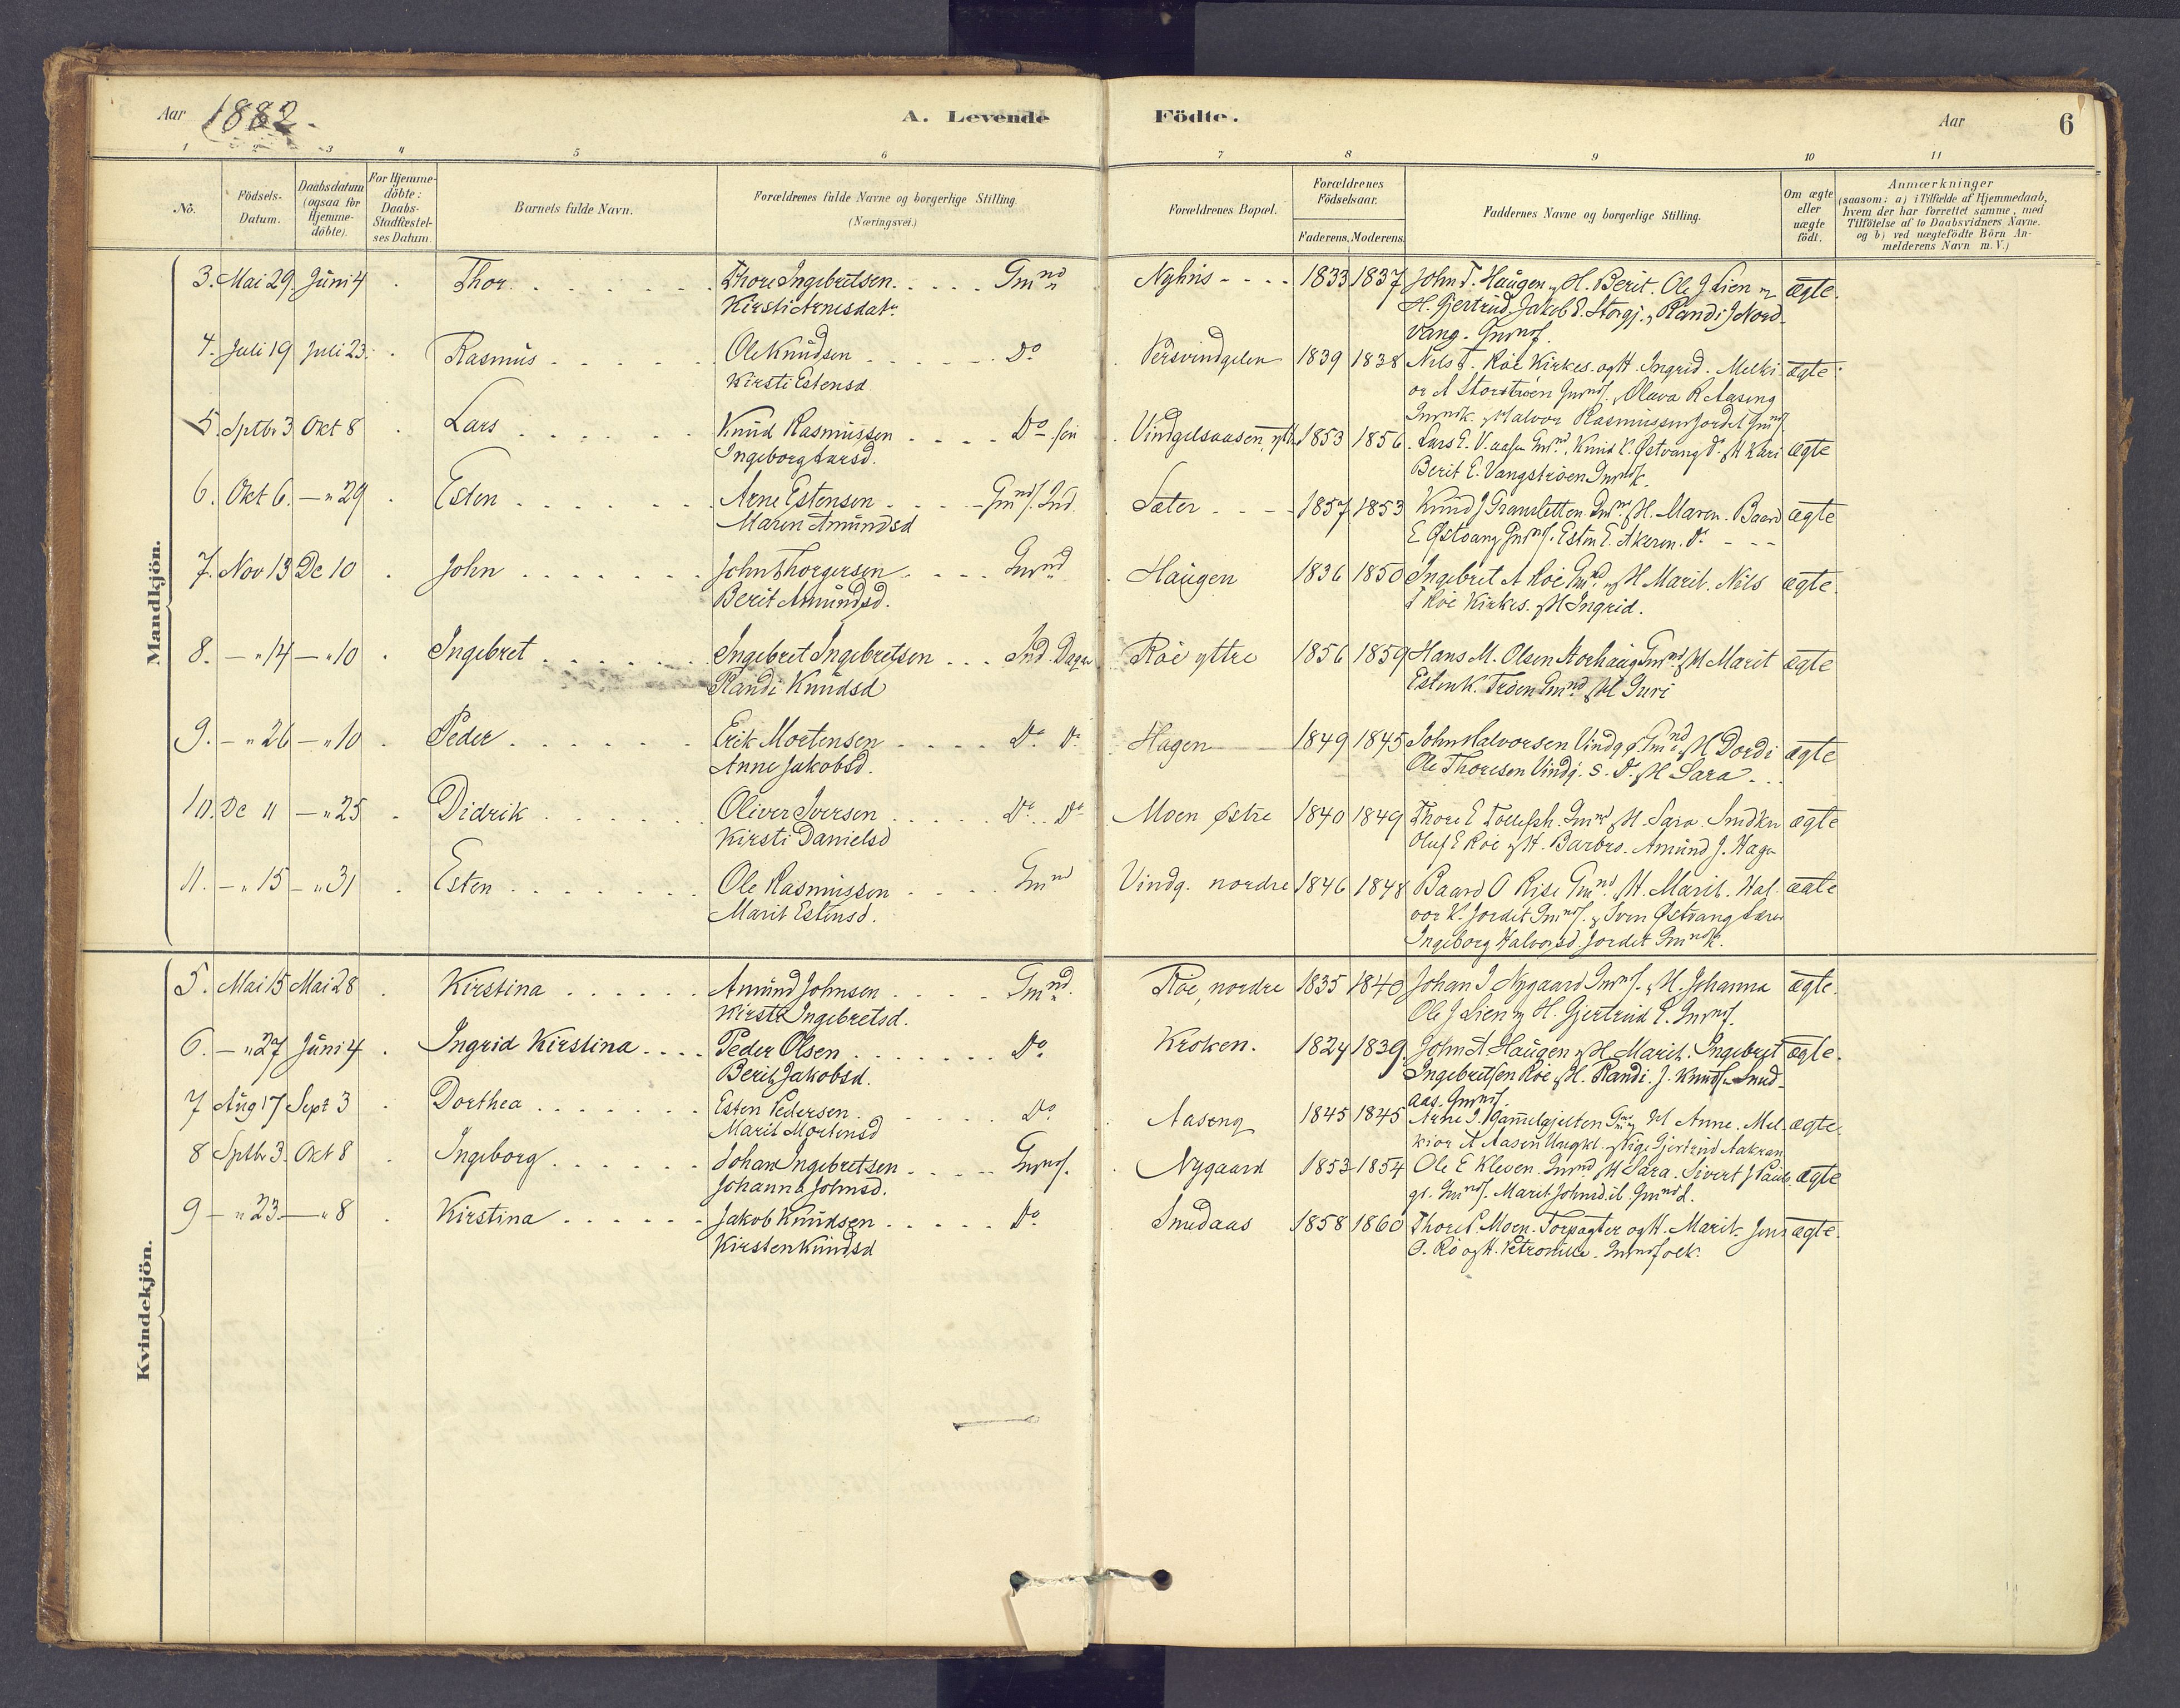 Aar 1882.
A. Levende
Födte.
Aar
6
1 2 3 4 5 6 7 8 9 10 11
No.
Födsels-
Datum.
Daabsdatum
(ogsaa for
Hjemme-
döbte).
For Hjemme-
döbte:
Daabs-
Stadfæstel-
ses Datum.
Barnets fulde Navn.
Forældrenes fulde Navne og borgerlige Stilling.
(Næringsvei.)
Forældrenes Bopæl.
Forældrenes
Födselsaar.
Faderens. Moderens.
Faddernes Navne og borgerlige Stilling.
Om ægte
eller
uægte
födt.
Anmærkninger
(saasom: a) i Tilfælde af Hjemmedaab,
hvem der har forrettet samme, med
Tilföielse af to Daabsvidners Navne.
og b) ved uægtefödte Börn An-
melderens Navn m. V.)
Mandkjön.
3. Mai 29 Juni 4 Thor Thore Ingebretsen Gmnd Nyhus 1833 1837 John T. Haugen H. Berit. Ole J Lien ægte.
Kirsti Arnesdatr. H. Gjertrud Jakob E. Storgj. Randi J Nord-
vang.
4. Juli 19 Juli 23. Rasmus Ole Knudsen Do 1839 1838 Nils T. Roe Kirkes. og H. Ingrid. Melki- ægte
Kirsti Estensd. or A Storstrøen Olava R Aaseng
Halvor Rasmussen Jordet
5. Sptbr 3 Okt 8 Lars Knud Rasmussen Do Vindgelsaasen, 1853 1856 Lars E. V. aasen Knud E. Østvang Do H Kari ægte
Ingeborg Larsd. Berit E. Vangstrøen
6. Okt 6. " 29 Esten Arne Estensen Sæter 1857 1853 Knud J H. Maren. Baard ægte
Maren Amundsd E Østvang Esten E. Akeren. Do
7. Nov 13 De 10 John John Thorgersen Gmnd Haugen 1836 1850 Ingebret A Roe H Marit. Nils ægte.
Berit Amundsd. T Roe Kirkes. H Ingrid.
8. " 14 " 10 Ingebret Ingebret Ingebretsen Ind. Roe yttre 1856 1859 Hans M. Olsen Storhaug Gmnd H Marit ægte
Randi Knudsd Esten K. Trøen Gmnd H Guri
9. " 26 " 10 Peder Erik Mortensen Do Do Hagen 1849 1845 John Halvorsen Vindg Gmnd H Dordi ægte
Anne Jakobsd. Ole Thoresen Vindg. S. Do H Sara
10. De 11 " 25 Didrik Oliver Iversen Do Do Moen østre 1840 1849 Thore E H. Sara. ægte
Kirsti Danielsd Oluf E Roe H. Barbro. Amund J. Hage
11. " 15 " 31 Esten Ole Rasmussen Gmnd Vindg. nordre 1846 1848 Baard O Rise Gmnd. H. Marit. Hal- ægte
Marit Estensd. vor K. Jordet Iver Østvang
Ingeborg Halvorsd. Jordet
Kvindekjön.
5. Mai 15 Mai 28 Kirstina Amund Johnsen Gmnd. Roe, nordre 1835 1840 Johan I Nygaard H. Johanna ægte.
Kirsti Ingebretsd. Ole J Lien H. Gjertrud E.
6. " 27 Juni 4 Ingrid Kirstina Peder Olsen Do. Kroken. 1824 1839. John T. Haugen H. Marit. Ingebret ægte.
Berit Jakobsd. Ingebretsen Roe H. Randi. J. Knuds. Smed-
aas.
7 Aug 17 Sept 3 Dorthea Esten Pedersen Do Aaseng 1845 1845 Arne I. Gammelgjelten H Anne. Mel- ægte.
Marit Mortensd kior A Aasen Ungkl. Pige Gjertrud Aakran
8 Sptbr 3. Okt 8 Ingeborg Johan Ingebretsen Nygaard 1853 1854 Ole E Kleven. H Sara. Sivert J ægte
Johanna Johnsd. Marit Johnsd.
9 " 23 " 8 Kirstina Jakob Knudsen Do Smedaas 1858 1860 Thore P. Moen. Forpagter og H. Marit. Jens ægte.
Kirsten Knudsd O. Rø og H. Petronille.